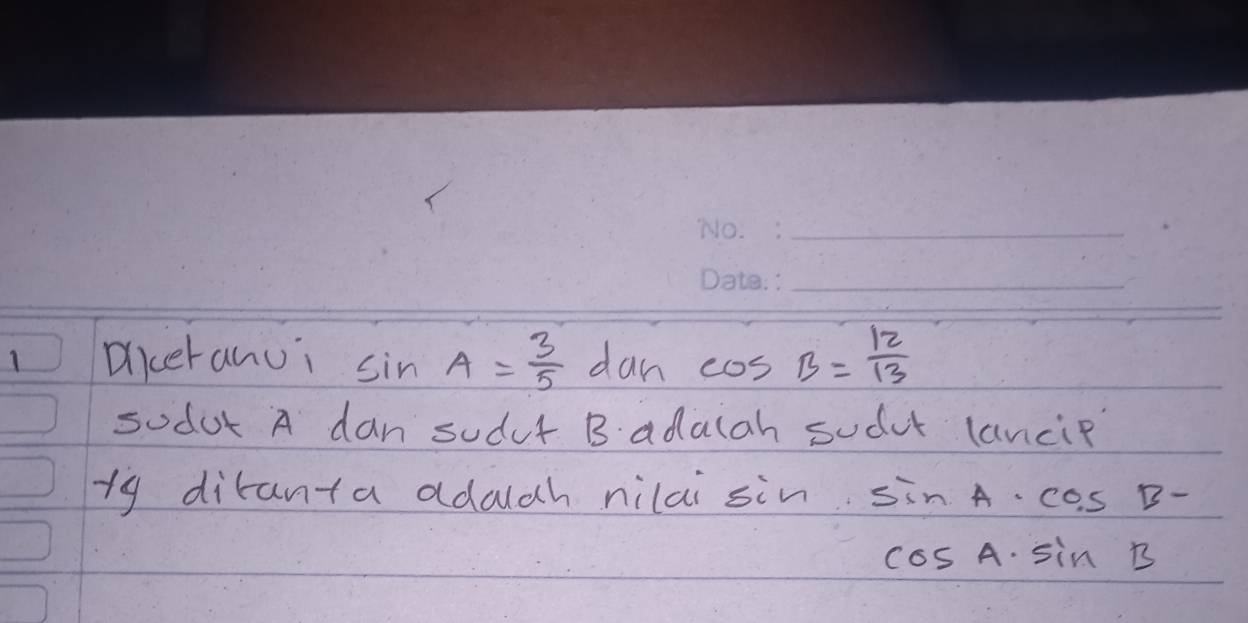 No. :
Date. :
1 Diketahui sin A = 3/5 dan cos B = 12/13
sudut A dan sudut B adalah sudut lancip
yg ditanta adalah nilai sin sin A . cos B -
cos A . sin B